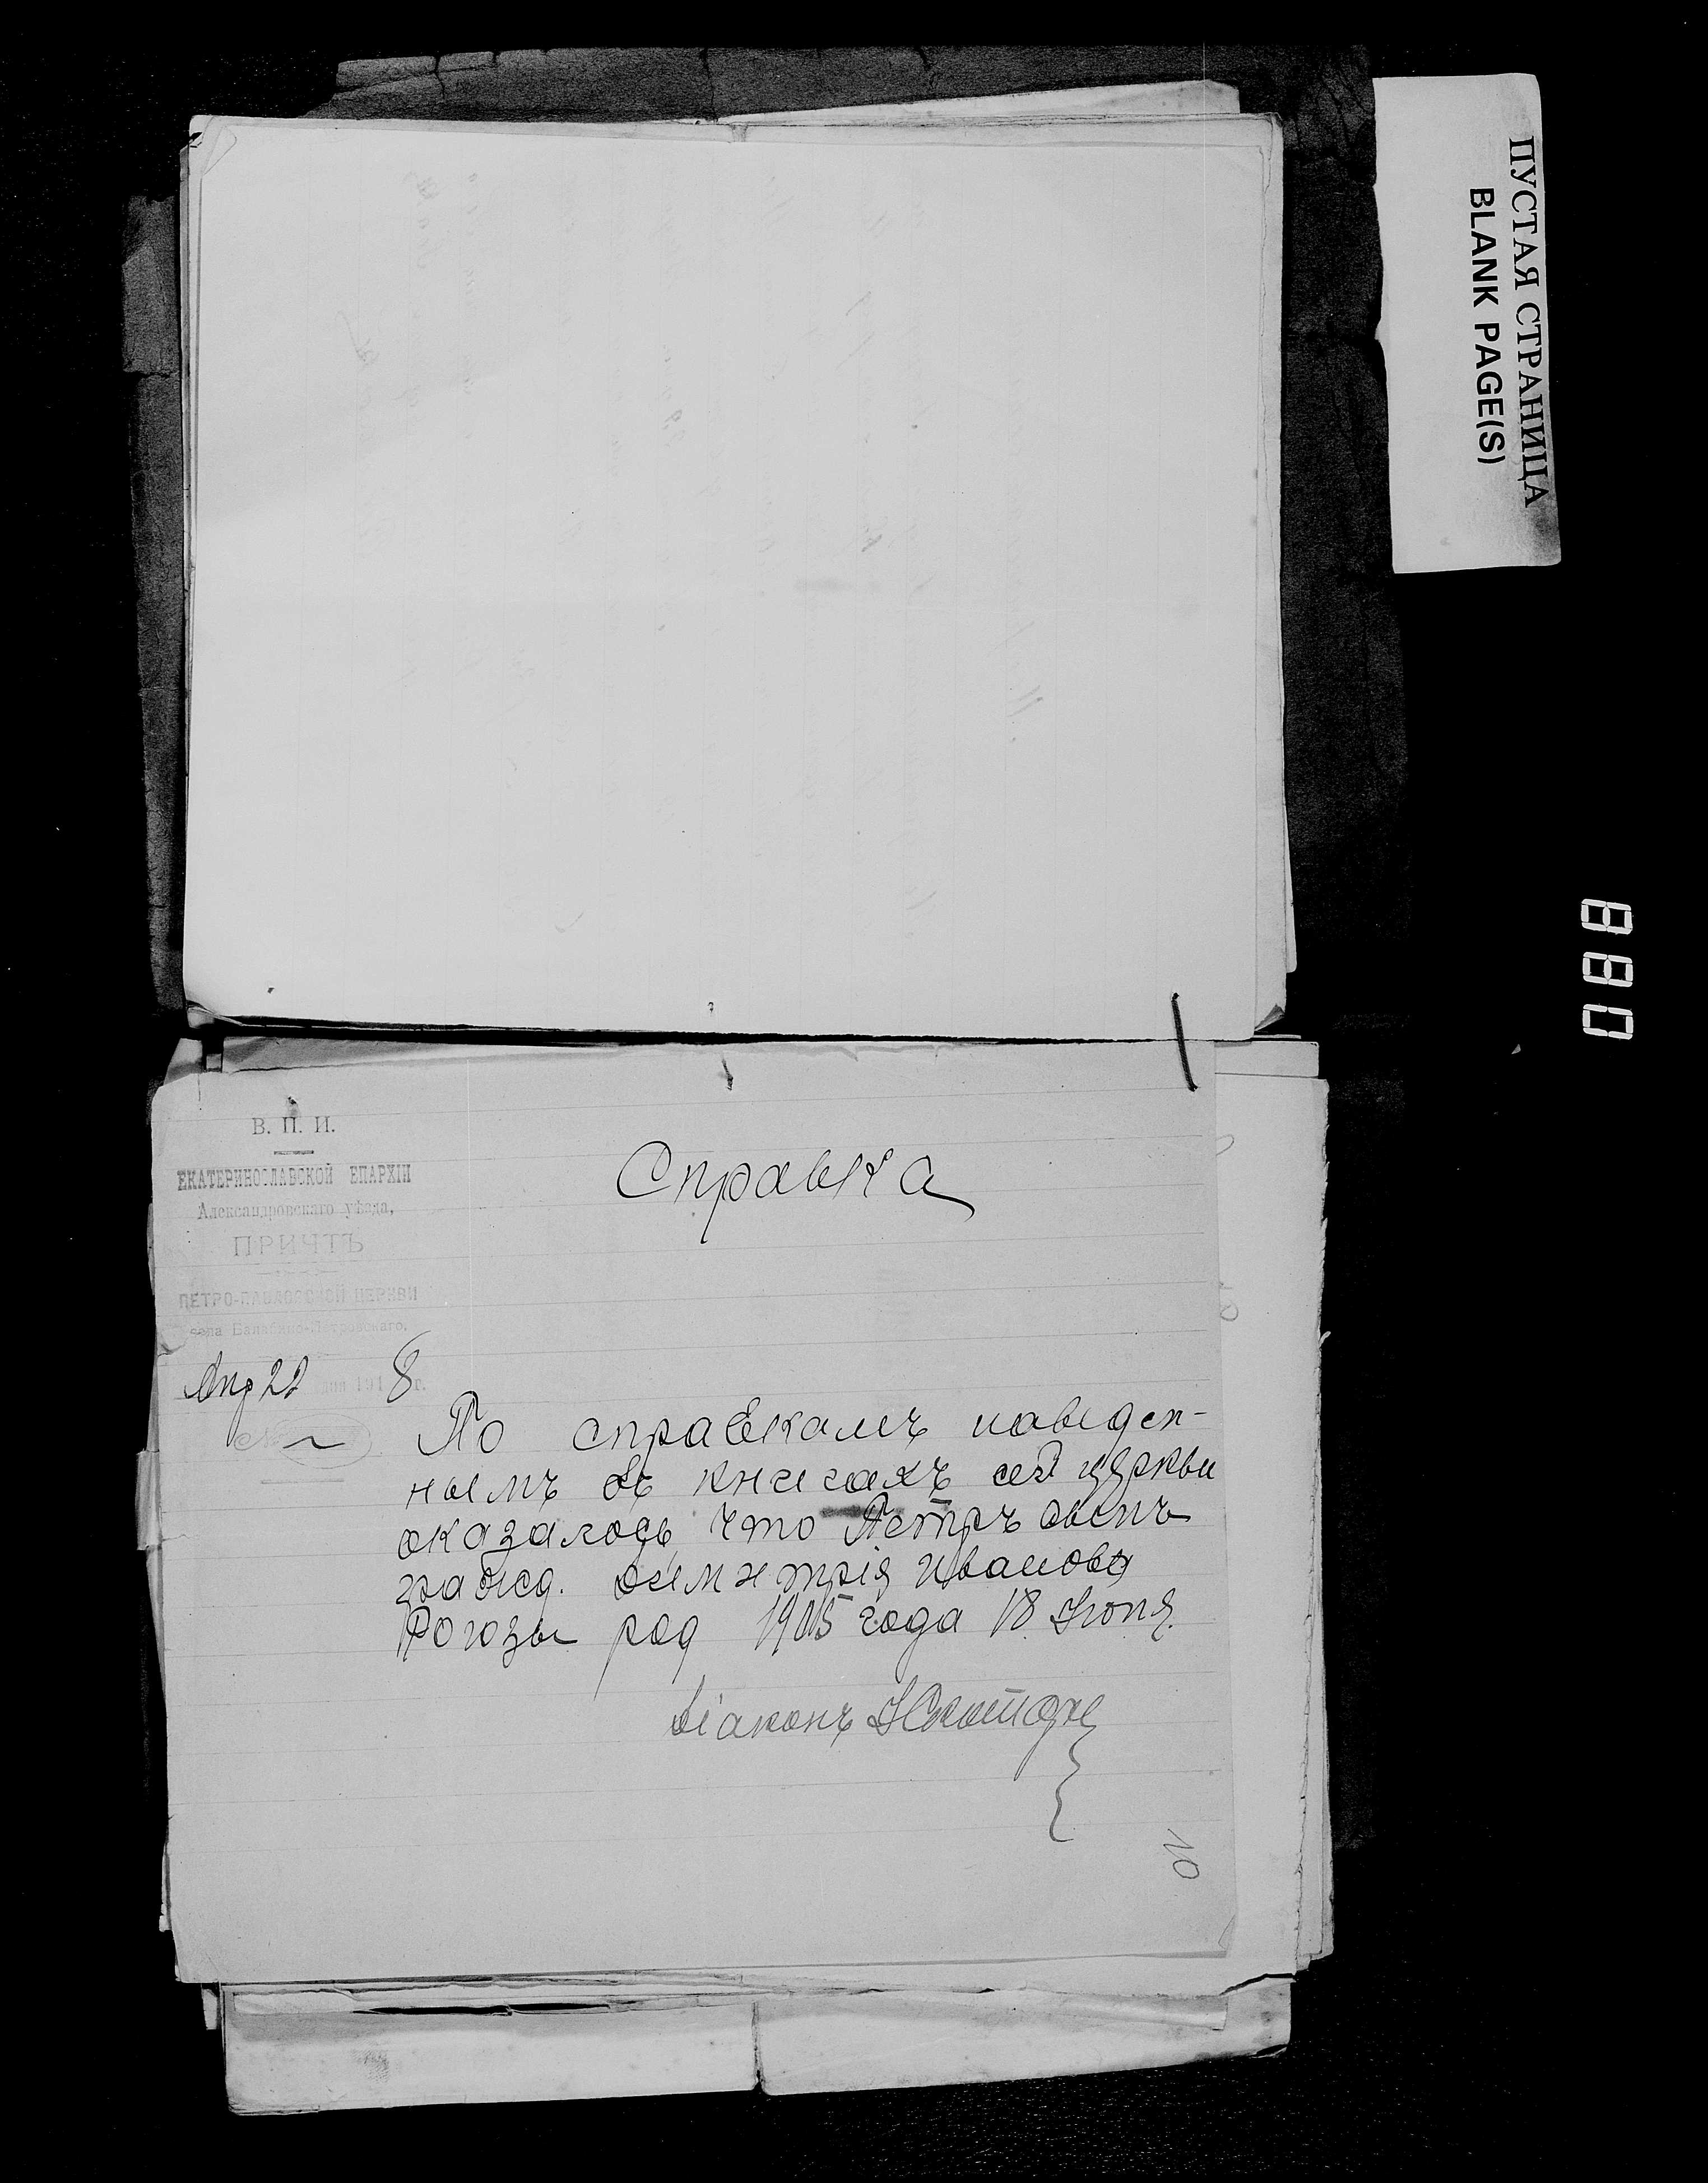 ПУСТАЯ СТРАНИЦА
BLANK PAGE(S)
880
В. П. И.
ЕКАТЕРИНОСЛАВСКОЙ ЕПАРХІИ
Александровскаго уѣзда,
ПРИЧТЪ
ПЕТРО-ПАВЛОВСКОЙ ЦЕРКВИ
села Балабино-Петровскаго.
Апр 22 дня 191 8 г.
№
Справка
По справкамъ наведен-
нымъ въ книгахъ сей церкви
оказалось что Петръ сынъ
гражд. Димитрія Иванова
род 1905 года 18 Іюня.
Діаконъ
10